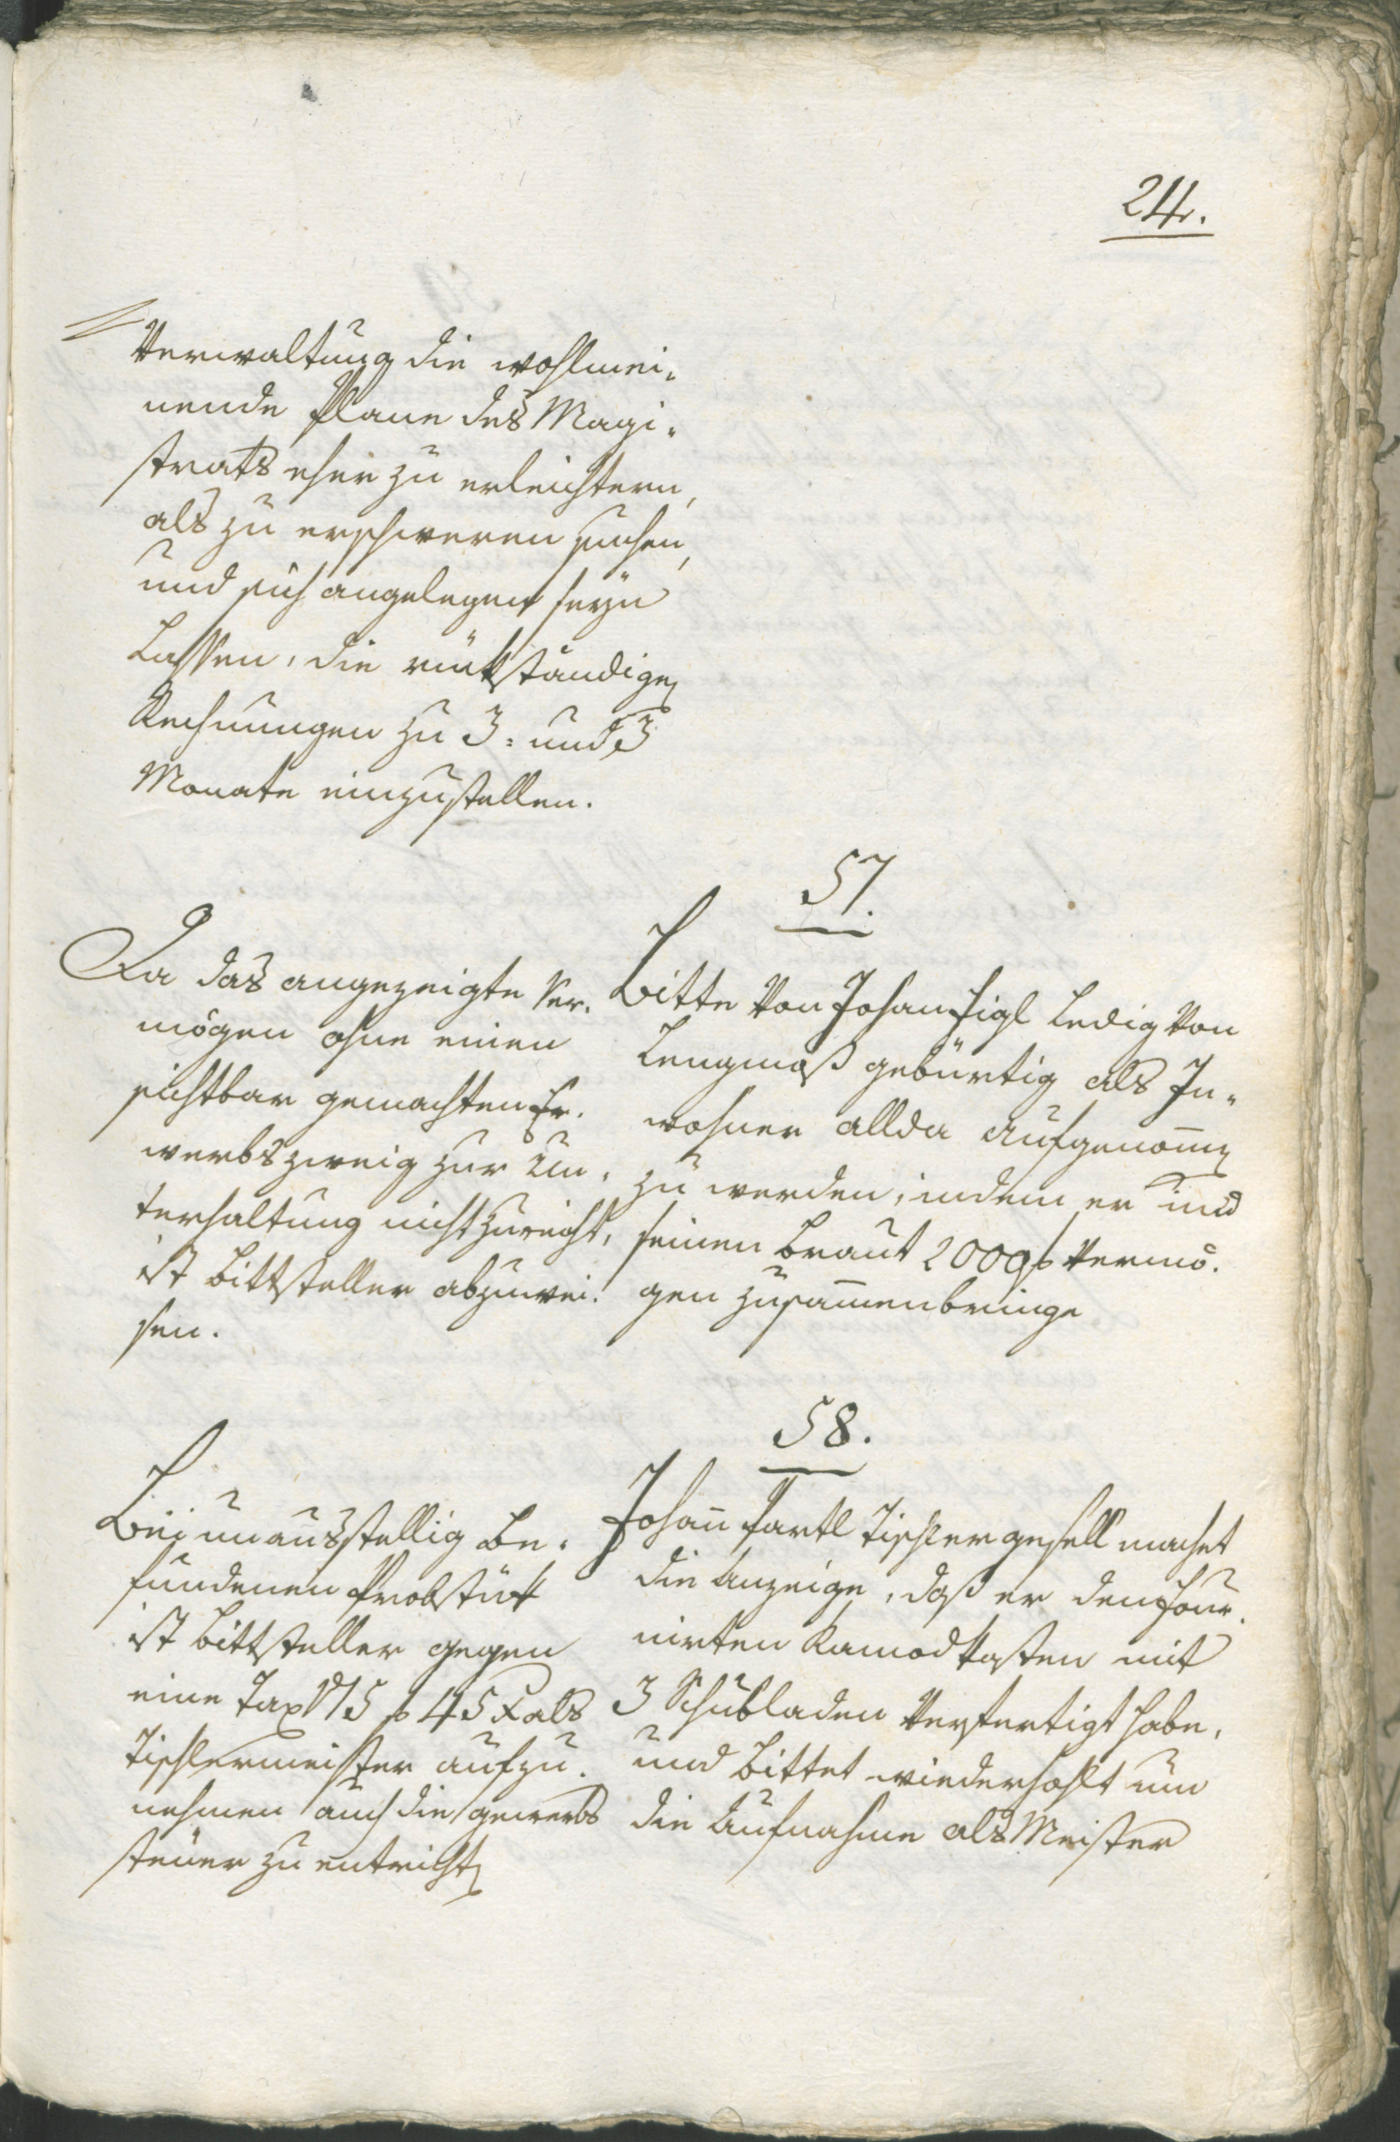 24.
Verwaltung die wohlmei-
nende Plane des Magi-
strats eher zu erleichtern,
als zu erschweren suchen,
und sich angelegen seyn
lassen, die rükständigen
Rechnungen zu 3 = und 3
Monate einzustellen.
57.
Da das angezeigte Ver-
mögen ohne einen
sichtbar gemachten Er-
werbszweig zur Un-
terhaltung nicht zureicht,
ist Bittsteller abzuwei-
sen.
Bitte von Johan Figl ledig von
Lengmoß gebürtig als In-
wohner allda aufgenomen
zu werden, indem er und
seinen Braut 2000 f Vermö-
gen zusammenbringe
58.
Bei unausstellig be-
fundenen Probstük
ist Bittsteller gegen
eine Tax v 15 f 45 x als
Tischlermeister aufzu-
nehmen auch die gewerbs
steuer zu entrichten
Johann Hartl Tischlergesell machet
die Anzeige, daß er den four-
nirten Kamodkasten mit
3 Schubladen verfertigt habe,
und bittet wiederhohlt um
die Aufnahme als Meister